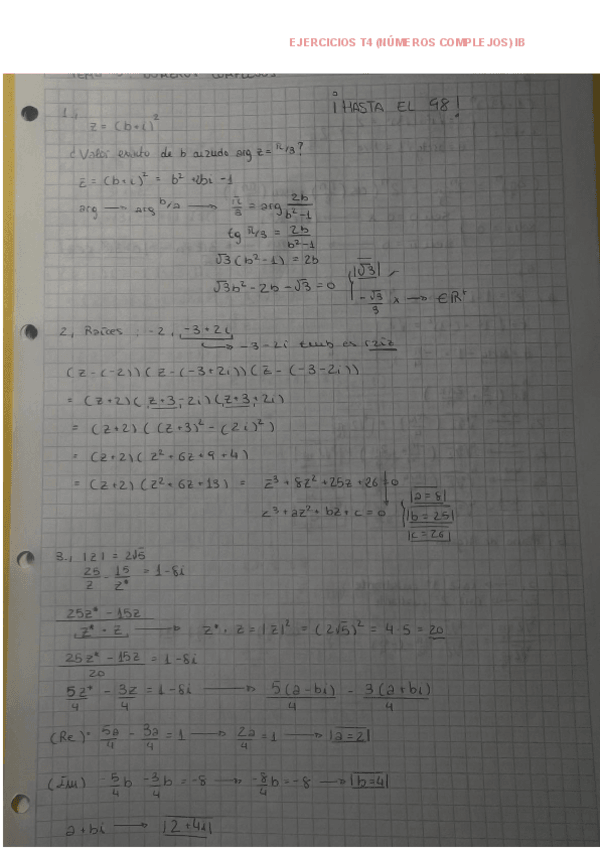 EJERCICIOS T4 (NÚMEROS COMPLEJOS) IB
¡HASTA EL 98!
1.,
z = (b+i)²
¿Valor exacto de b cuando arg z = π/3?
z = (b+i)² = b² + 2bi - 1
arg → arg b/a → π/3 = arg 2b/b²-1
tg π/3 = 2b/b²-1
√3(b²-1) = 2b
√3b² - 2b - √3 = 0 { |√3| ✓
-√3/3 x → ∈ℝ⁺
2, Raíces: -2, -3+2i
→ -3-2i tmb es raíz
(z-(-2))(z-(-3+2i))(z-(-3-2i))
= (z+2)(z+3-2i)(z+3+2i)
= (z+2)((z+3)²-(2i)²)
= (z+2)(z²+6z+9+4)
= (z+2)(z²+6z+13) = z³+8z²+25z+26=0
z³+az²+bz+c=0 { |a=8|
|b=25|
|c=26|
3., |z| = 2√5
25/z - 15/z* = 1-8i
25z* - 15z / z* · z → z* · z = |z|² = (2√5)² = 4·5 = 20
25z* - 15z / 20 = 1-8i
5z*/4 - 3z/4 = 1-8i → 5(a-bi)/4 - 3(a+bi)/4
(Re) 5a/4 - 3a/4 = 1 → 2a/4 = 1 → |a=2|
(Im) -5/4 b - 3/4 b = -8 → -8/4 b = -8 → |b=4|
a+bi → |2+4i|